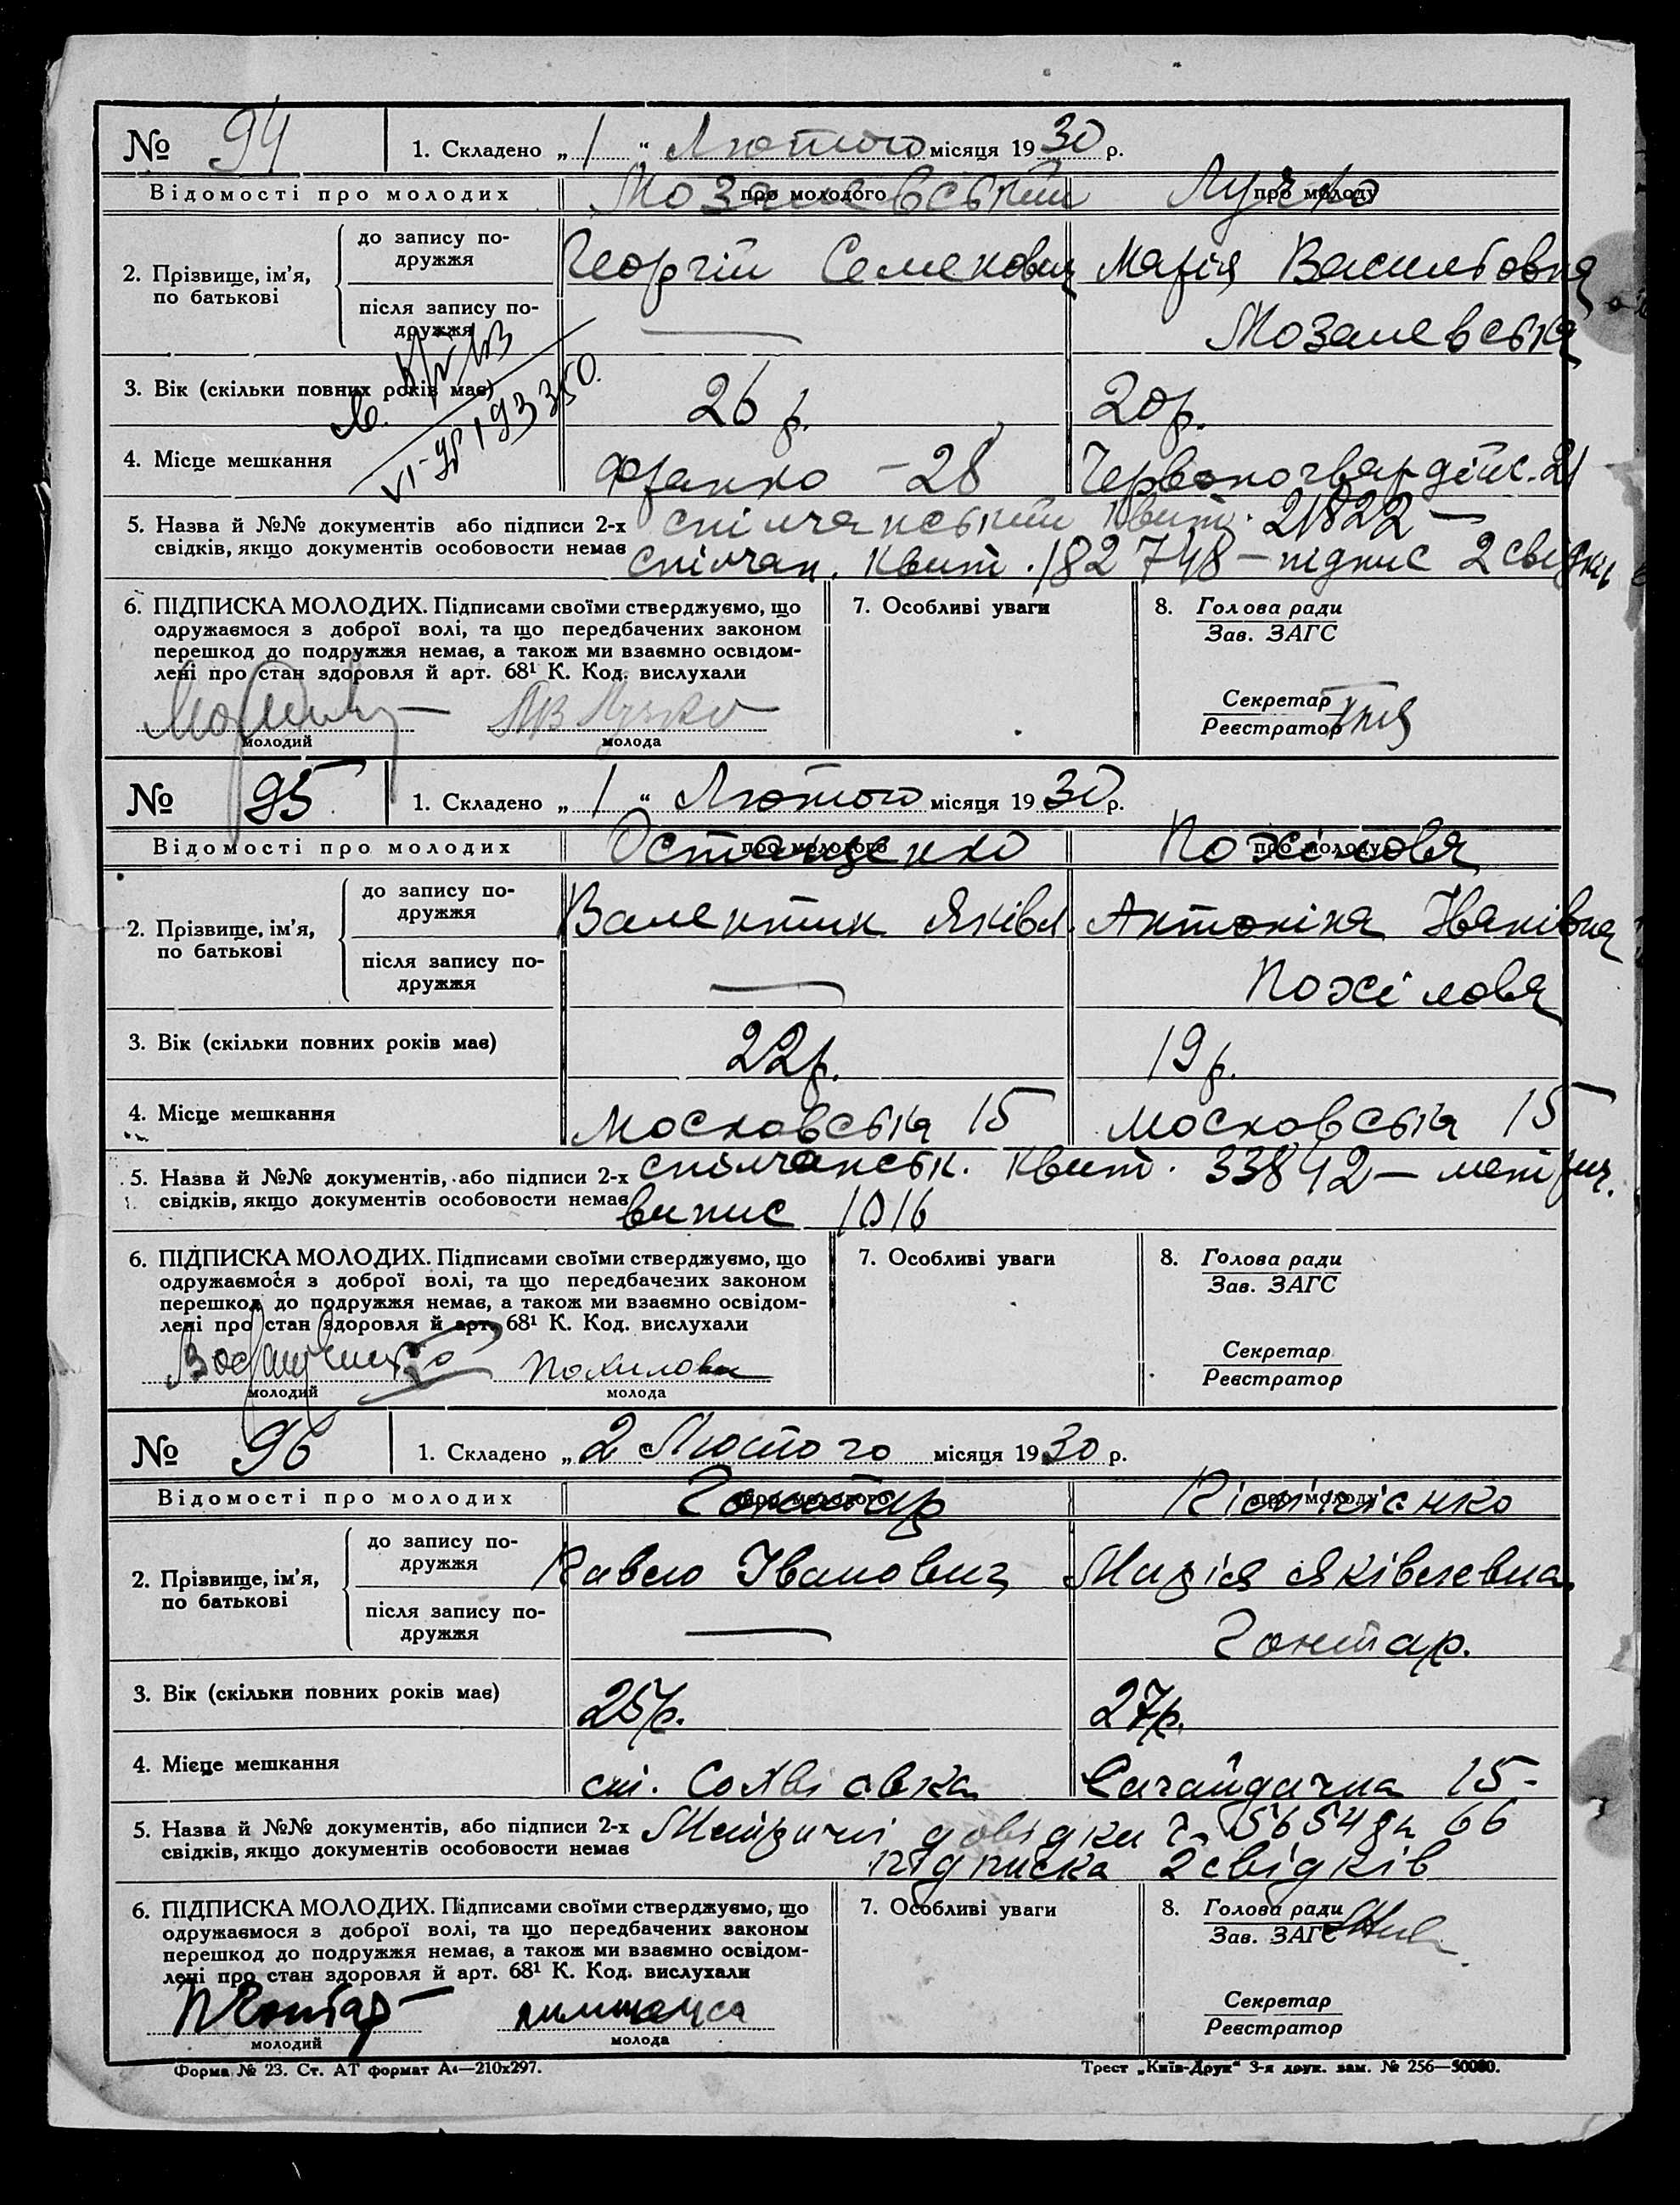 № 94 1. Складено „ 1 “ Лютого місяця 1930 р.
Відомості про молодих про молодого про молоду
Мозалевський Лучко
2. Прізвище, ім’я, по батькові
до запису по-
дружжя
Георгій Семенович Марія Васильовна
після запису по-
дружжя
— Мозалевська
3. Вік (скільки повних років має) 26 р. 20 р.
4. Місце мешкання Франко - 28 Червоногвардійс. 21
5. Назва й №№ документів або підписи 2-х спілчанський квит. 21822 —
свідків, якщо документів особовости немає спілчан. квит. 182748 – підпис 2 свідків
6. ПІДПИСКА МОЛОДИХ. Підписами своїми стверджуємо, що
одружаємося з доброї волі, та що передбачених законом
перешкод до подружжя немає, а також ми взаємно освідом-
лені про стан здоровля й арт. 68¹ К. Код. вислухали
молодий молода
7. Особливі уваги
8. Голова ради
Зав. ЗАГС
Секретар
Реєстратор
№ 95 1. Складено „ 1 “ Лютого місяця 1930 р.
Відомості про молодих про молодого про молоду
Остащенко Пожілова
2. Прізвище, ім’я, по батькові
до запису по-
дружжя
Валентин Яківл. Антоніна Іванівна
після запису по-
дружжя
— Пожілова
3. Вік (скільки повних років має) 22 р. 19 р.
4. Місце мешкання Московська 15 Московська 15
5. Назва й №№ документів, або підписи 2-х спілчанськ. квит. 33842 – метрич.
свідків, якщо документів особовости немає випис 1016
6. ПІДПИСКА МОЛОДИХ. Підписами своїми стверджуємо, що
одружаємося з доброї волі, та що передбачених законом
перешкод до подружжя немає, а також ми взаємно освідом-
лені про стан здоровля й арт. 68¹ К. Код. вислухали
Пожилова
молодий молода
7. Особливі уваги
8. Голова ради
Зав. ЗАГС
Секретар
Реєстратор
№ 96 1. Складено „ 2 “ Лютого місяця 1930 р.
Відомості про молодих про молодого про молоду
Гонтар
2. Прізвище, ім’я, по батькові
до запису по-
дружжя
Павло Іванович Марія Яківлевна
після запису по-
дружжя
— Гонтар.
3. Вік (скільки повних років має) 25 р. 27 р.
4. Місце мешкання ст. Сагайдачна 15 -
5. Назва й №№ документів, або підписи 2-х Метричні довідки 5654 да 66
свідків, якщо документів особовости немає підписка 2 свідків
6. ПІДПИСКА МОЛОДИХ. Підписами своїми стверджуємо, що
одружаємося з доброї волі, та що передбачених законом
перешкод до подружжя немає, а також ми взаємно освідом-
лені про стан здоровля й арт. 68¹ К. Код. вислухали
П Гонтар
молодий молода
7. Особливі уваги
8. Голова ради
Зав. ЗАГС
Секретар
Реєстратор
Форма № 23. Ст. АТ формат А4—210х297. Трест „Київ-Друк“ 3-я друк. зам. № 256—50000.